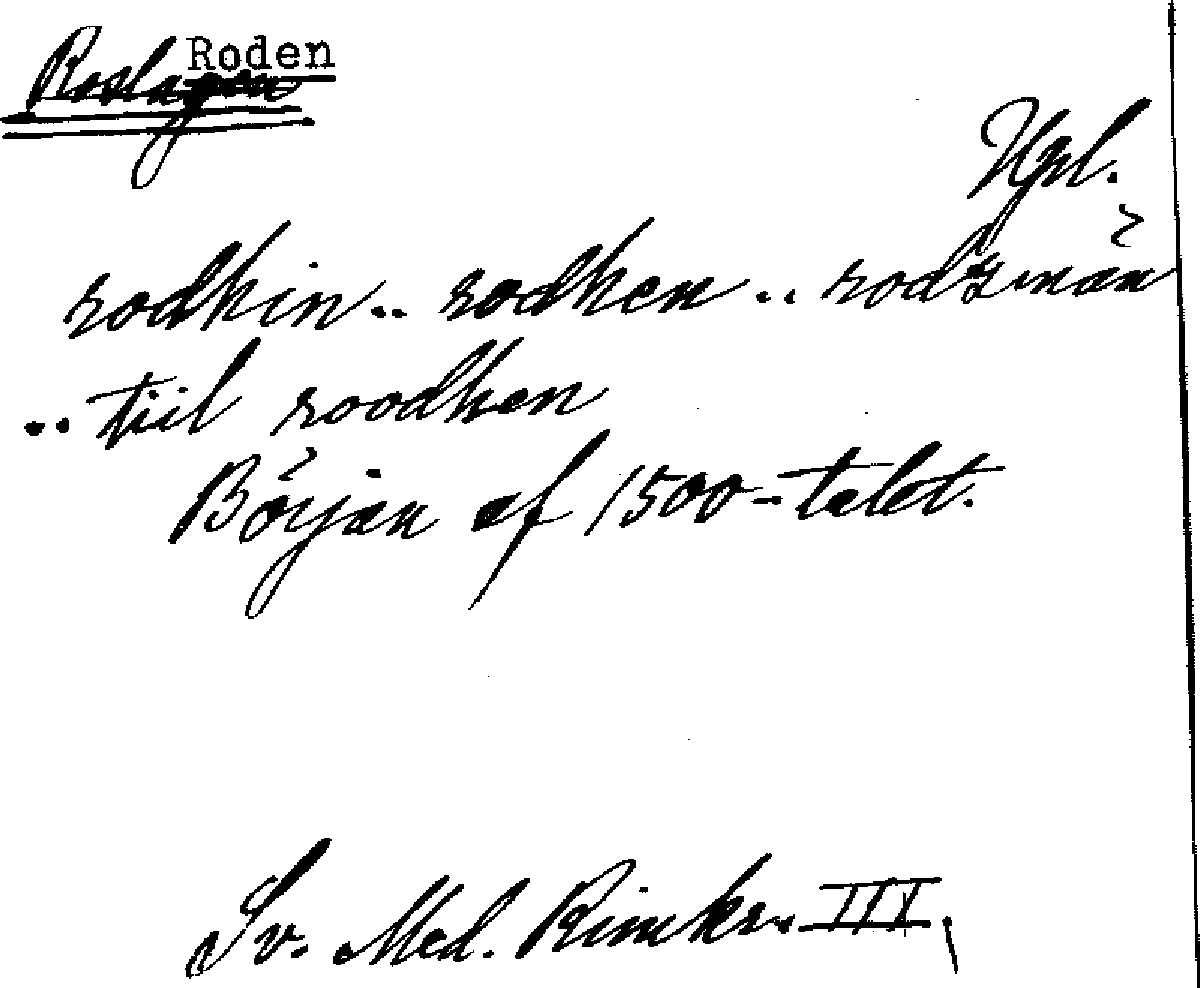 Roden
Roslagen
Upl.
rodhin .. rodhen .. rodzmän
.. tiil roodhen
Början af 1500-talet.
Sv. Med. Rimkr. III,